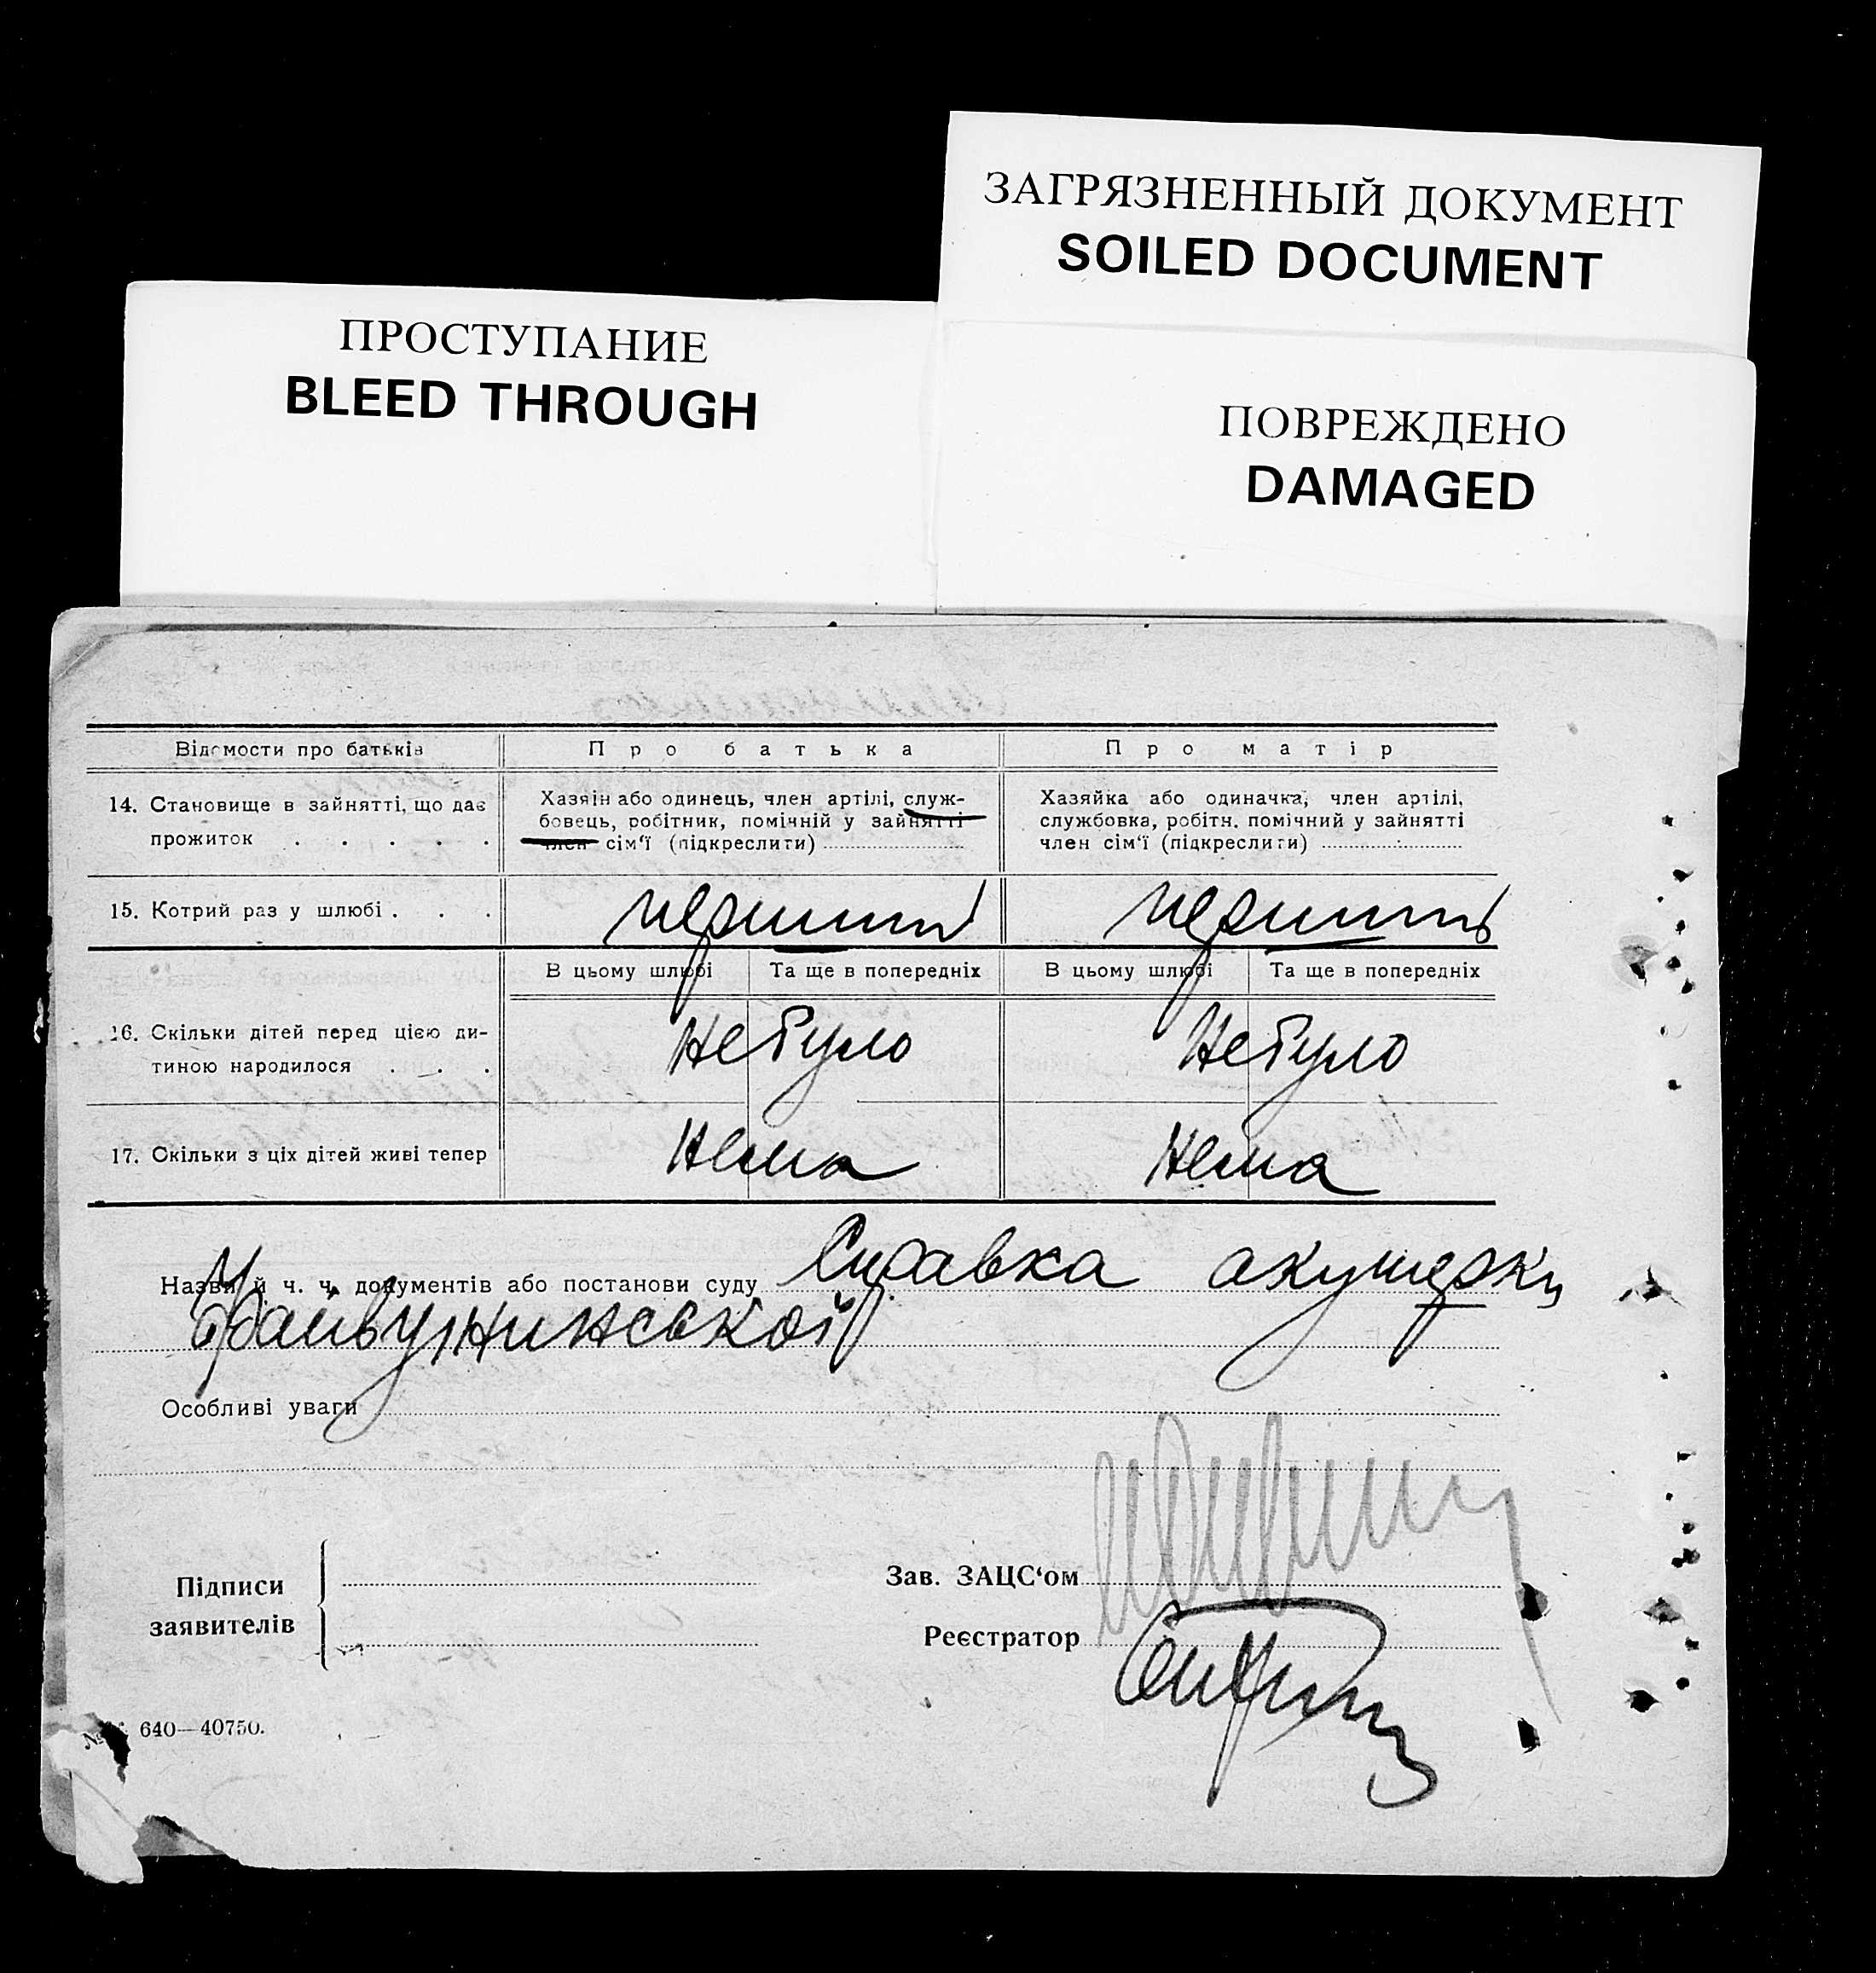 ЗАГРЯЗНЕННЫЙ ДОКУМЕНТ
SOILED DOCUMENT
ПРОСТУПАНИЕ
BLEED THROUGH
ПОВРЕЖДЕНО
DAMAGED
Відомости про батьків
Про батька
Про матір
14. Становище в зайнятті, що дає
прожиток . . . . .
Хазяїн або одинець, член артілі, служ-
бовець, робітник, помічній у зайнятті
член сім'ї (підкреслити)
Хазяйка або одиначка, член артілі,
службовка, робітн. помічний у зайнятті
член сім'ї (підкреслити)
15. Котрий раз у шлюбі . . .
первий
первий
В цьому шлюбі
Та ще в попередніх
В цьому шлюбі
Та ще в попередніх
16. Скільки дітей перед цією ди-
тиною народилося . . .
Не було
Не було
17. Скільки з ціх дітей живі тепер
Нема
Нема
Назви й ч. ч. документів або постанови суду Справка акушерки
Особливі уваги
Підписи
заявителів
Зав. ЗАЦС‘ом
Реєстратор
№ 640—40750.